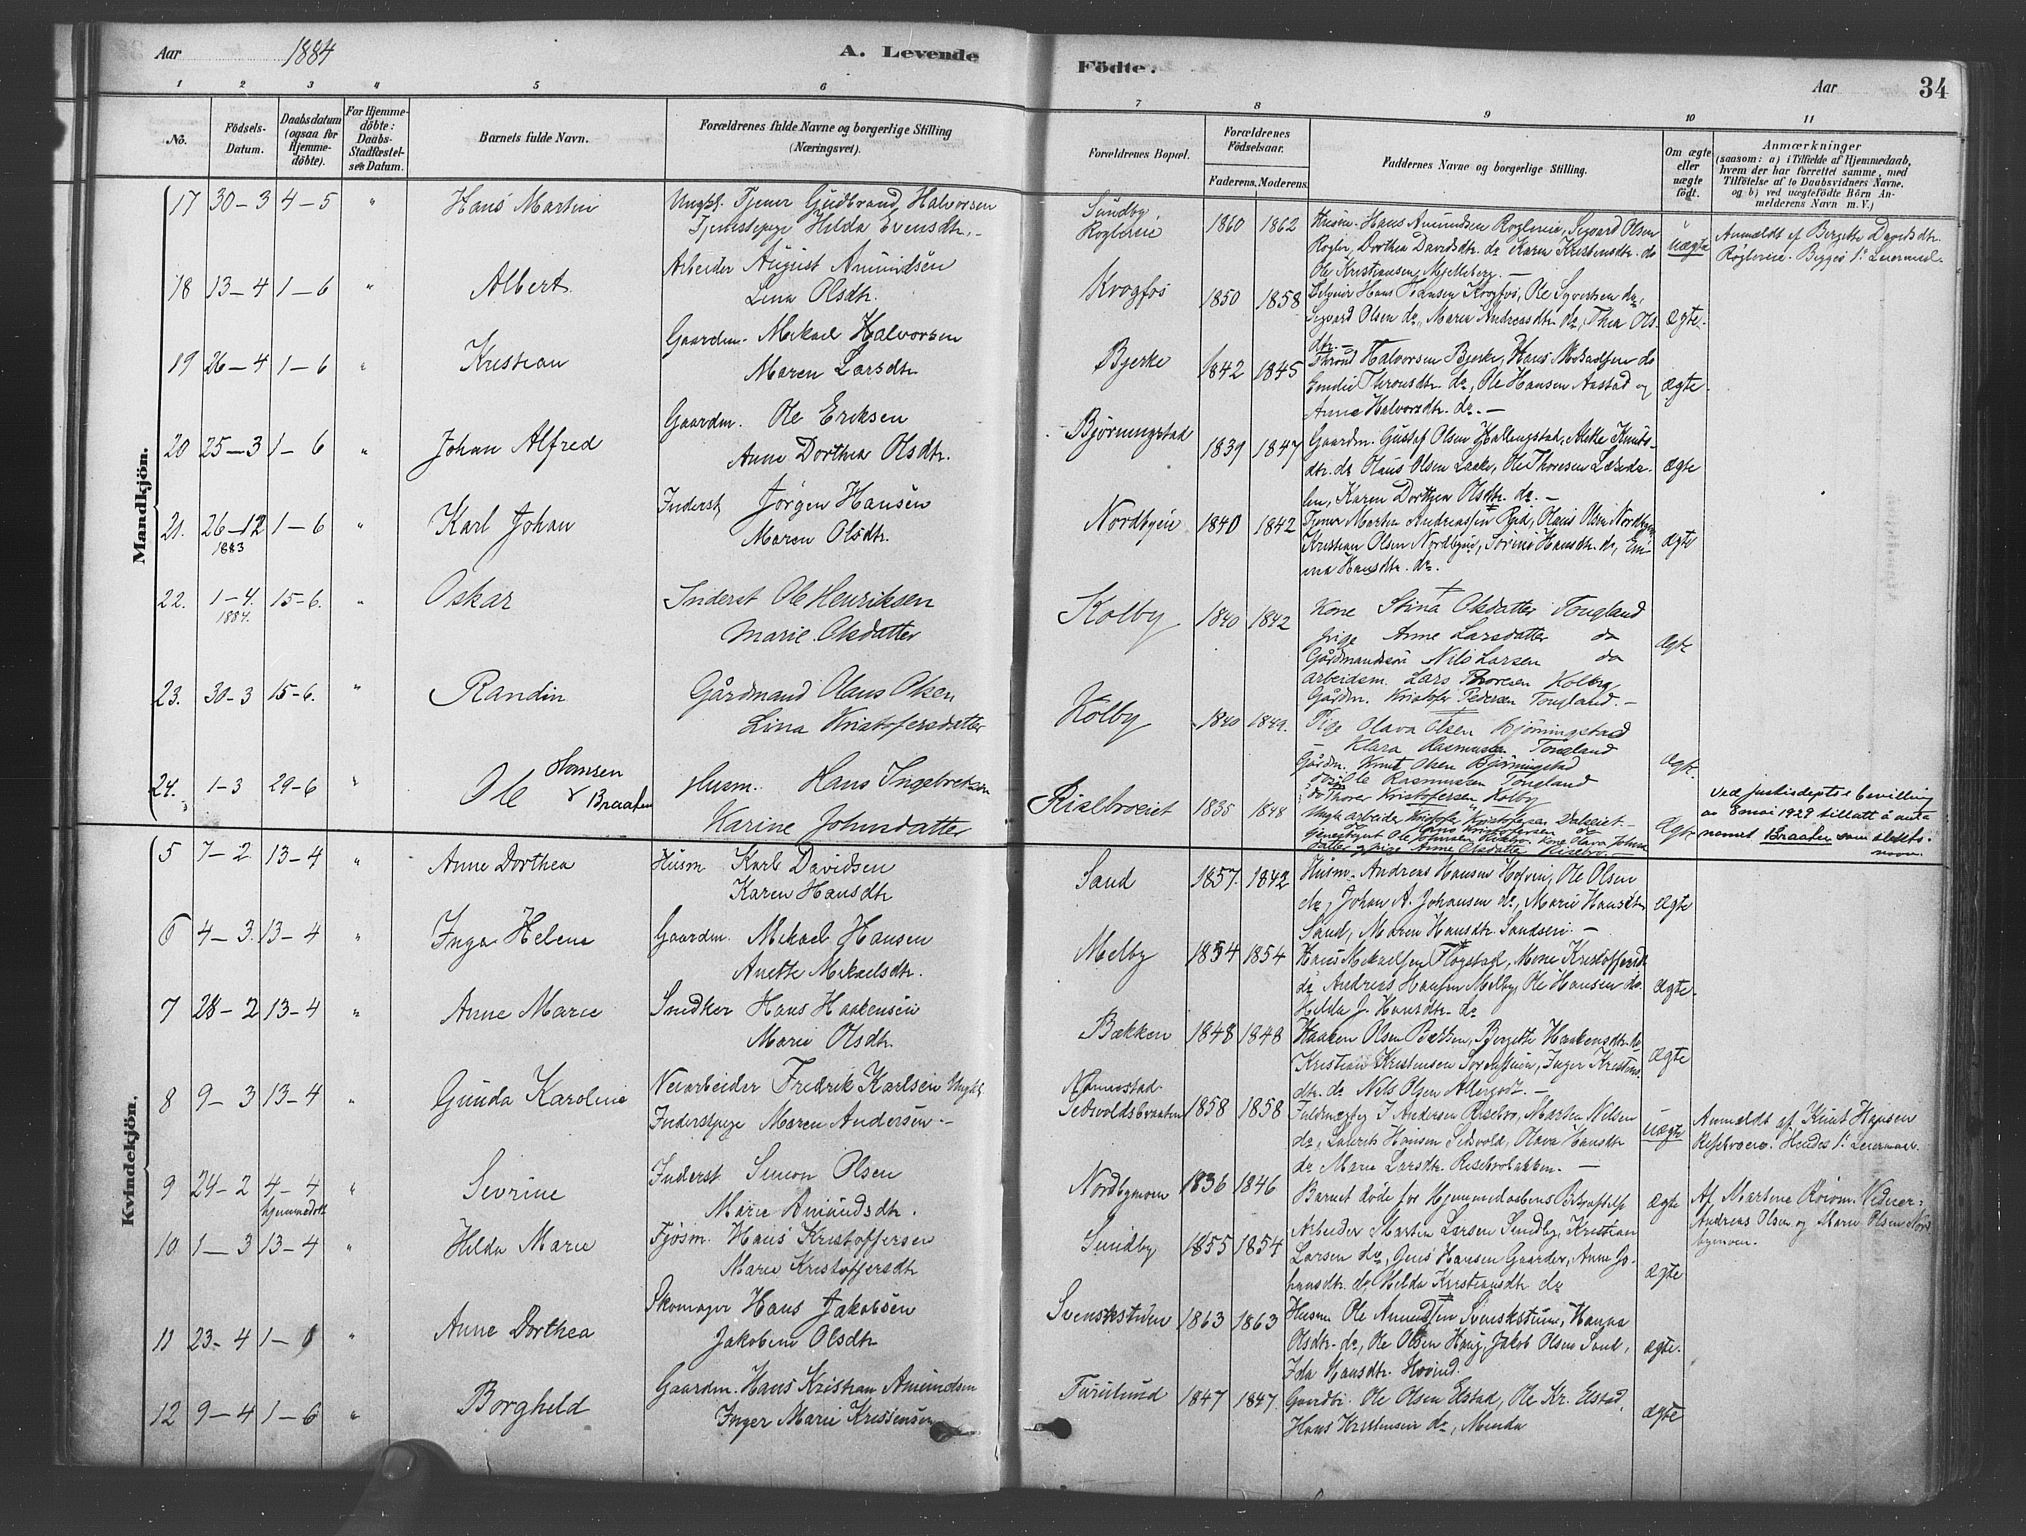 Aar 1884 A. Levende
1 2 3 4 5 6
No.
Födsels-Datum.
Daabsdatum (ogsaa for Hjemmedöbte).
For Hjemmedöbte: Daabs-Stadfæstelses Datum.
Barnets fulde Navn.
Forældrenes fulde Navne og borgerlige Stilling (Næringsvei).
Mandkjön.
17 30-3 4-5 " Hans Martin Ungk. Tjener Gudbrand Halvorsen
Tjenestepige Hilda Evensdtr.
18 13-4 1-6 " Albert Arbeider August Amundsen
Lina Olsdtr.
19 26-4 1-6 " Kristian Gaardm. Mikael Halvorsen
Maren Larsdtr
20 25-3 1-6 " Johan Alfred Gaardm. Ole Eriksen
Anne Dorthea Olsdtr.
21. 26-12 1883 1-6 " Karl Johan Inderst Jörgen Hansen
Maren Olsdtr.
22. 1-4. 1884. 15-6. " Oskar Inderst Ole Henriksen
Marie Olsdatter
23. 30-3 15-6. " Randin Gårdmand Olaus Olsen
Lina Kristofersdatter
24. 1-3 29-6 " Ole Hansen Braaten Husm. Hans Ingebretsen
Karine Johnsdatter
Kvindekjön.
5 7-2 13-4 " Anne Dorthea Husm Karl Davidsen
Karen Hansdtr
6 4-3 13-4 " Inga Helene Gaardm. Mikael Hansen
Anette Mikaelsdtr.
7 28-2 13-4 " Anne Marie Snedker Hans Haakensen
Marie Olsdtr.
8 9-3 13-4 " Gunda Karoline Veiarbeider Fredrik Karlsen Ungk.
Inderstpige Maren Andersen
9 24-2 4-4 hjemmedöbt " Sevrine Inderst Simon Olsen
Marie Amundsdtr.
10. 1-3 13-4 " Hilda Marie Fjösm. Hans Kristoffersen
Marie Kristoffersdtr
11 23-4 1-6 " Anne Dorthea Skomager Hans Jakobsen
Jakobine Olsdtr
12 9-4 1-6 " Borghild Gaardm. Hans Kristian Amundsen
Inger Marie Kristensen
Födte. Aar 34
7 8 9 10 11
Forældrenes Bopæl.
Forældrenes Födselsaar.
Faderens. Moderens.
Faddernes Navne og borgerlige Stilling.
Om ægte eller uægte födt.
Anmærkninger
(saasom: a) i Tilfælde af Hjemmedaab,
hvem der har forrettet samme, med
Tilföielse af to Daabsvidners Navne.
og b) ved uægtefödte Börn Anmelderens Navn m. V.)
Sundby, Roglereie 1860 1862 Husm. Hans Amundsen Roglereie, Sigvard Olsen
Rogler, Dorthea Davidsdtr. do Karen Kristensdtr. do
Ole Kristiansen Mjelteberg. uægte
Anmeldt af Bergitte Davidsdtr.
Röglereie. Begges 1ste Leiermaal.
Krogfos 1850 1858 Hans Krogfos, Ole Syvertsen do,
Sigvard Olsen do, Maria Andreasdtr. do, Thea Olsdtr. ægte.
Bjerke 1842 1845 Thron Halvorsen Bjerke, Hans do
Throndsdtr. do, Ole Hansen Aastad og
Anne Halvorsdtr. do. ægte.
Björningstad 1839 1847 Gaardm. Gustaf Olsen Hallingstad, Knutsdtr. do
Olaus Olsen Laake, Ole Thoresen
Karen Dorthea Olsdtr. do. ægte
Nordbyeie 1840 1842 Tjener Martin Andreassen Olaus Olsen Nordby
Kristian Olsen Nordbyeie, Sörine Hansdtr. do, Emma
Hansdtr. do. ægte
Kolby 1840 1842 Kone Stina Olsdatter Tougland
pige Anne Larsdatter do
Gårdmandssön Nils Larsen do
arbeidsm. Lars Thoresen Kolby
Gårdm. Kristofer Pedersen Tougland. ægte
Kolby 1840 1849. Pige Olava Olsen Björningstad
Klara Rasmussen Tougland
Gårdm. Knut Olsen Björningstad
Rasmussen Tougland
Thorer Kristofersen Kolby ægte.
Riselbroeiet 1835 1848 Ungk arbeider Kristofer Kristofersen Daleiet
Hans Kristofersen do
Ole Johnsen Kone Olava Johnsdatter
pige Anne Olsdatter Risebro. ægte
Ved justisdepts bevilling
av 8 mai 1929 tillatt å anta
navnet Braaten som slektsnavn.
Sand 1857 1842 Husm. Andreas Hansen Hofven, Ole Olsen
do, Johan A. Johansen do, Marie Hansdtr.
Sand, Maren Hansdtr. Sandseie. ægte
Melby 1854 1854 Hans Mikaelsen Flogstad, Mine Kristoffersd.
do Andreas Hansen Melby, Ole Hansen do.
Hilda J. Hansdtr. do ægte.
Bækken 1848 1848 Haaken Olsen Bækken, Bergitte Haakensdtr. do
Kristian Kristensen Inger Kristensdtr.
do Nils Olsen Allergodt. ægte
Sedvoldsbraaten 1858 1858 J. Andersen Risebro, Martin Nilsen
do, Laurits Hansen Sedvold, Olava Hansdtr
do Marie Larsdtr. Risebrobakken. uægte
Anmeldt af Knut Hansen
Risebroeie. Hendes 1ste Leiermaal.
Nordbymoen 1836 1846 Barnet döde för Hjemmedaabens Bekræftelse ægte
Af Martine Röiom. Vidner:
Andreas Olsen og Marie Olsen Nordbymoen.
Sundby 1855 1854 Arbeider Martin Larsen Sundby, Kristian
Larsen do, Jens Hansen Gaarder, Anne Johansdtr.
do, Hilda Kristiansdtr. do ægte
Svenskstuen 1863 1863 Husm Ole Amundsen Svenskstuen, Hanna
Olsdtr. do, Ole Olsen Haug, Jakob Olsen Sand,
Ida Hansdtr. Hovind. ægte.
Furulund 1847 1847 Gaardbr. Ole Olsen Elstad, Ole Kr. Elstad,
Hans Kristensen do, Minda ægte